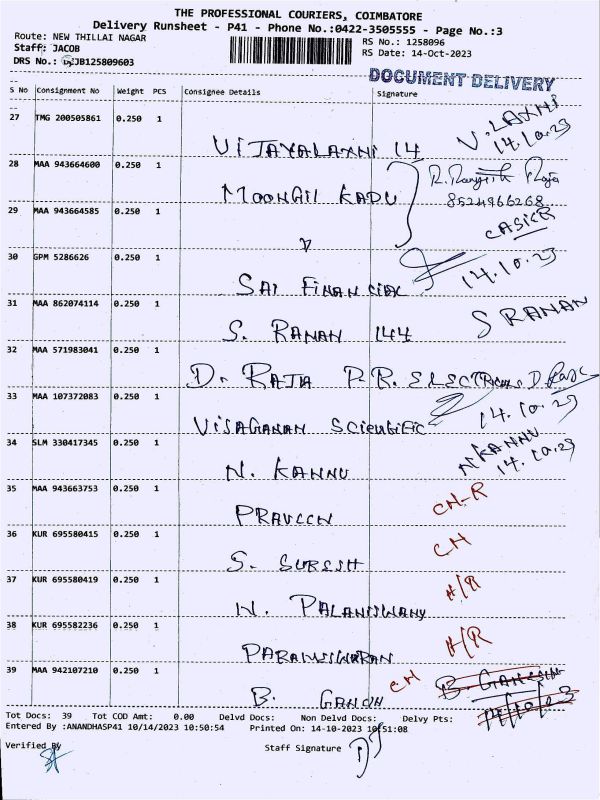 THE PROFESSIONAL COURIERS, COIMBATORE
Delivery Runsheet - P41 - Phone No.:0422-3505555 - Page No.:3
Route: NEW THILLAI NAGAR
RS No.: 1258096
Staff: JACOB
RS Date: 14-Oct-2023
DRS No.: JB125809603
DOCUMENT DELIVERY
S No Consignment No Weight PCS Consignee Details Signature
27 TMG 200505861 0.250 1 VIJAYALAXMI 14 V. LAXMI
14.10.23
28 MAA 943664600 0.250 1 MOONGIL KADU R. Ranjith Raja
8524966268
29 MAA 943664585 0.250 1 CASIER
30 GPM 5286626 0.250 1 SAI FINANCIAL 14.10.23
31 MAA 862074114 0.250 1 S. RANAN 144 S RANAN
32 MAA 571983041 0.250 1 D. RAJA P.R. ELECTRICALS D. Raja
33 MAA 107372083 0.250 1 VISAGANAN SCIENTIFIC 14.10.23
34 SLM 330417345 0.250 1 N. KANNU N KANNU
14.10.23
35 MAA 943663753 0.250 1 PRAVEEN CN-R
36 KUR 695580415 0.250 1 S. SURESH CN
37 KUR 695580419 0.250 1 N. PALANISWAMY H/R
38 KUR 695582236 0.250 1 PARAMISWARAN H/R
39 MAA 942107210 0.250 1 B. GANESH CN B. GANESH
14/10/23
Tot Docs: 39 Tot COD Amt: 0.00 Delvd Docs: Non Delvd Docs: Delvy Pts:
Entered By :ANANDHASP41 10/14/2023 10:50:54 Printed On: 14-10-2023 10:51:08
Verified By Staff Signature